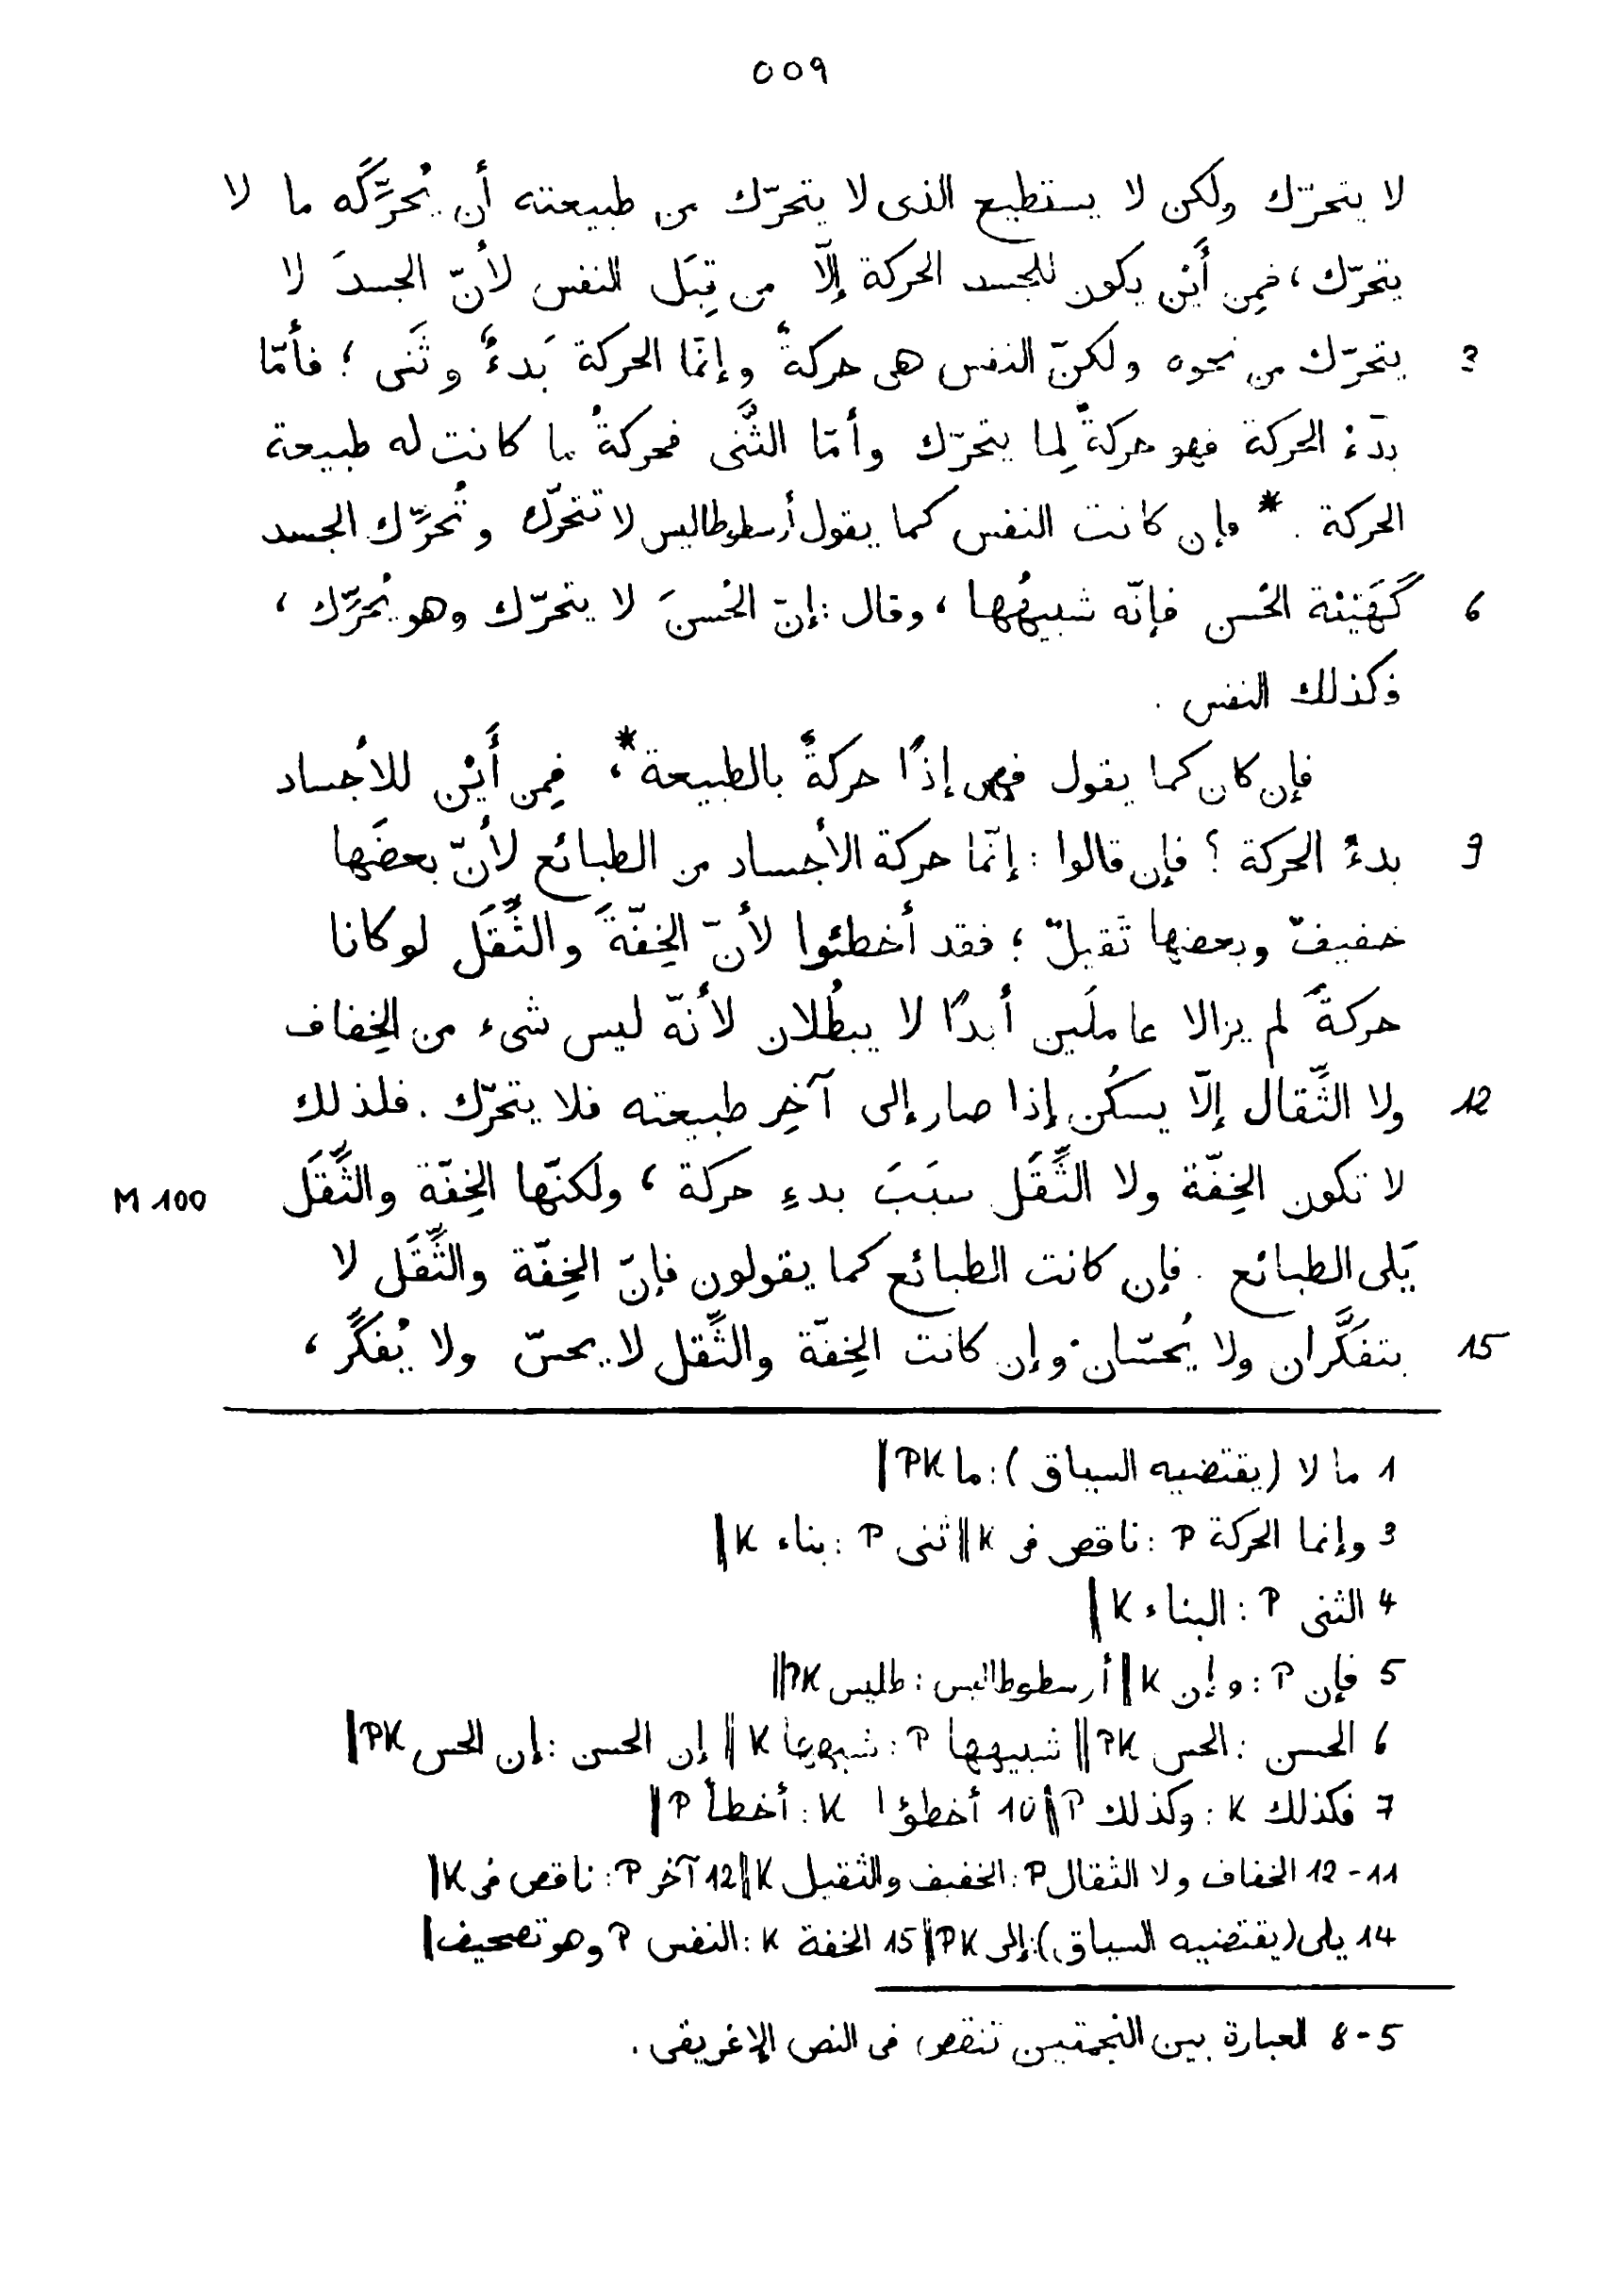 ٥٥٩
لا يتحرّك ولكن لا يستطيع الذى لا يتحرّك من طبيعته أن يُحرِّكَه ما لا
يتحرّك ، فمِن أَيْن يكون للجسد الحركة إلّا من قِبَل النفس لأنّ الجسدَ لا
3 يتحرّك من نحوه ولكنّ النفس هى حركةٌ وإنّما الحركة بَدءٌ وثَنى ؛ فأمّا
بدَءُ الحركة فهو حركةٌ لِما يتحرّك وأمّا الثَّنى فحركةُ ما كانت له طبيعة
الحركة . * فإن كانت النفس كما يقول أرسطوطاليس لا تتحرّك وتُحرِّك الجسد
6 كَهَيْئة الحُسن فإنّه شبيهُها ، وقال : إنّ الحُسنَ لا يتحرّك وهو يُحرِّك ،
فكذلك النفس .
فإن كان كما يقول فهى إذًا حركةٌ بالطبيعة * ، فمِن أَيْن للأجساد
9 بدءُ الحركة ؟ فإن قالوا : إنّما حركة الأجساد من الطبائع لأنّ بعضَها
خفيفٌ وبعضها ثقيلٌ ؛ فقد أخطئوا لأنّ الخِفّةَ والثِّقَل لو كانا
حركةً لم يزالا عاملَين أبدًا لا يبطُلان لأنّه ليس شىء من الخِفاف
12 ولا الثِّقال إلّا يسكُن إذا صار إلى آخِر طبيعته فلا يتحرّك . فلذلك
لا تكون الخِفّة ولا الثِّقَل سبَبَ بدءِ حركة ، ولكنّها الخِفّة والثِّقَل M 100
يَلى الطبائع . فإن كانت الطبائع كما يقولون فإنّ الخِفّة والثِّقَل لا
15 يتفكَّران ولا يُحسّان . وإن كانت الخِفّة والثِّقل لا يحسّ ولا يُفكِّر ،
1 ما لا (يقتضيه السياق) : ما PK |
3 وإنما الحركة P : ناقص فى K || ثنى P : بناء K |
4 الثنى P : البناء K |
5 فإن P : وإن K || أرسطوطاليس : طليس PK ||
6 الحسن : الحس PK || شبيهها P : شبهها K || إن الحسن : إن الحس PK |
7 فكذلك K : وكذلك P || 10 أخطؤا K : أخطأ P |
11-12 الخفاف ولا الثقال P : الخفيف والثقيل K || 12 آخر P : ناقص فى K |
14 يلى (يقتضيه السياق) : إلى PK || 15 الخفة K : النفس P وهو تصحيف |
5-8 العبارة بين النجمتين تنقص فى النص الإغريقى .